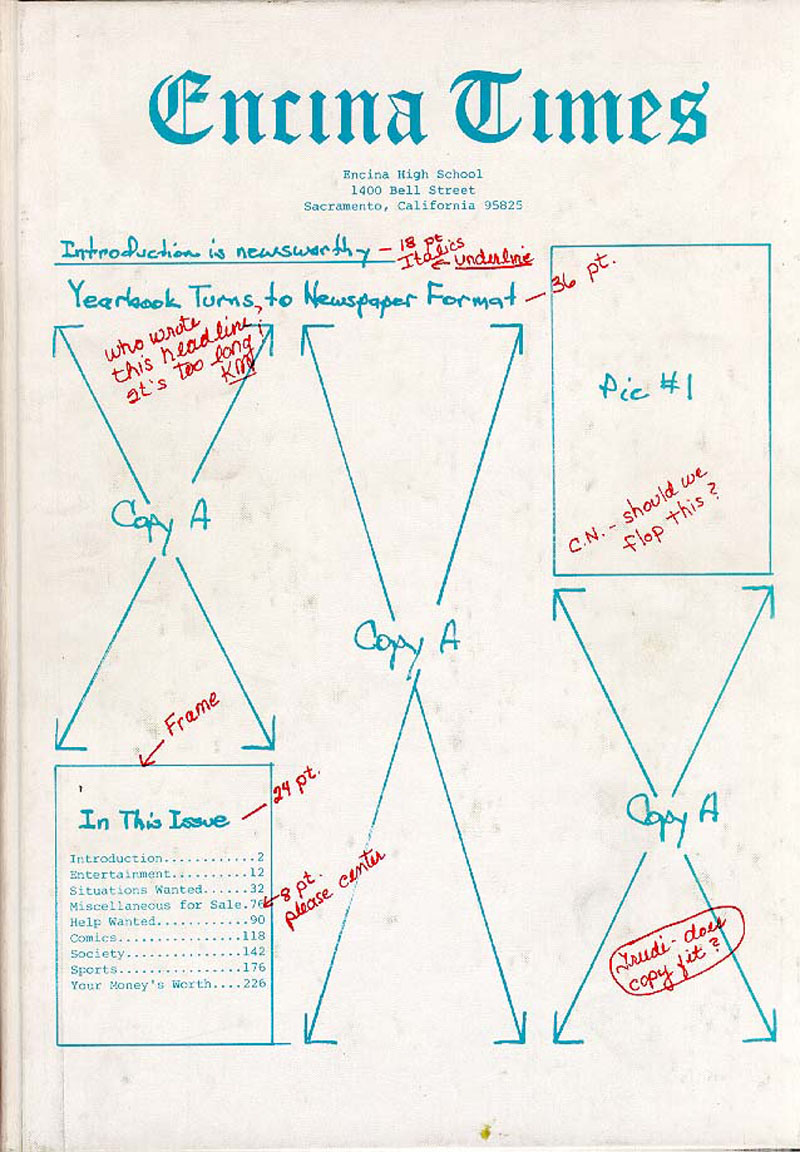 Encina Times
Encina High School
1400 Bell Street
Sacramento, California 95825
Introduction is newsworthy
18 pt.
Italics
underline
Yearbook Turns to Newspaper Format
36 pt.
who wrote
this headline?
It's too long!
KM
Pic #1
C.N. - should we
flop this?
Copy A
Copy A
Copy A
Frame
In This Issue
24 pt.
Introduction............2
Entertainment..........12
Situations Wanted......32
Miscellaneous for Sale.76
Help Wanted............90
Comics................118
Society...............142
Sports................176
Your Money's Worth....226
8 pt.
please center
Trudi - does
copy fit?